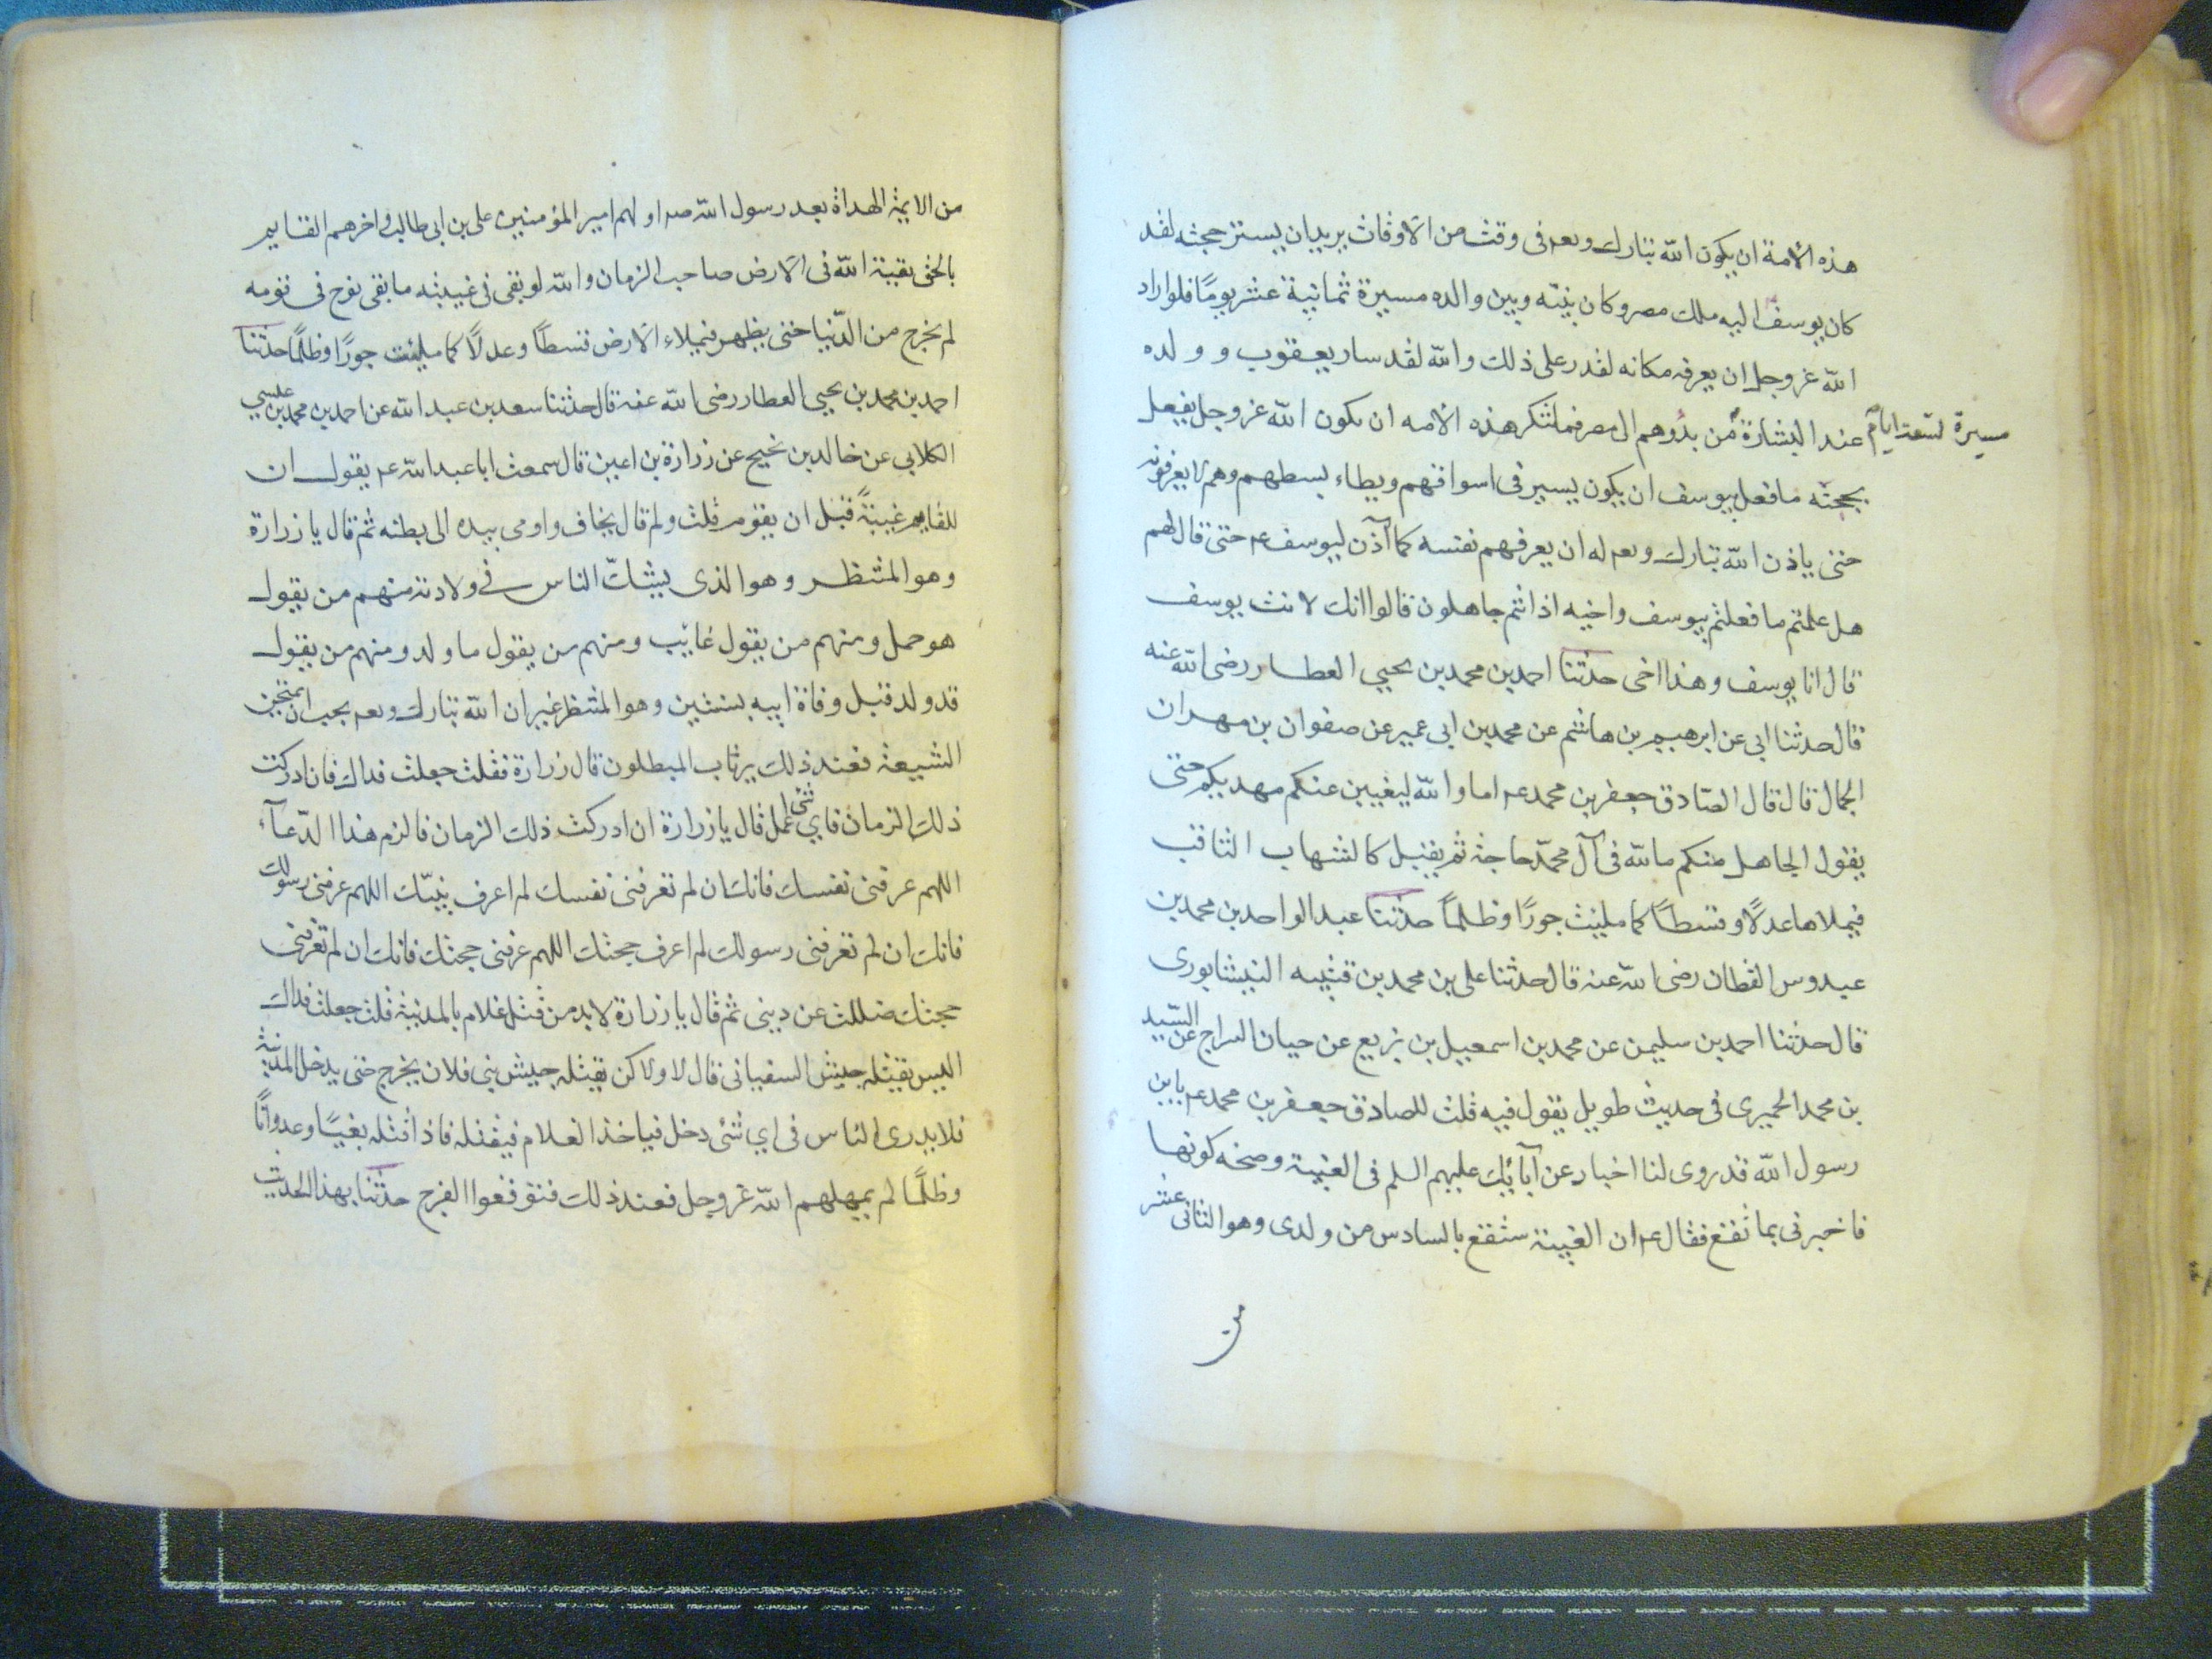 هذه الامة ان يكون الله تبارك وبعه فى وقت من الاوقات يريد ان يستر حجته لقد
كان يوسف اليه ملك مصر وكان بينه وبين والده مسيرة ثمانية عشر يومًا فلو اراد
الله عز وجل ان يعرفه مكانه لقدر على ذلك والله لقد سار يعقوب وولده
مسيرة تسعة ايام
عند البشارة من بدوهم الى مصر فما تنكر هذه الامه ان يكون الله عز وجل يفعل
بحجته ما فعل بيوسف ان يكون يسير فى اسواقهم ويطاء بسطهم وهم لا يعرفونه
حتى ياذن الله تبارك وبعه له ان يعرفهم نفسه كما آذن ليوسف عه حتى قال لهم
هل علمتم ما فعلتم بيوسف واخيه اذ انتم جاهلون قالوا انك لانت يوسف
قال انا يوسف وهذا اخى حدثنا احمد بن محمد بن يحيى العطار رضى الله عنه
قال حدثنا ابى عن ابرهيم بن هاشم عن محمد بن ابى عمير عن صفوان بن مهران
الجمال قال قال الصادق جعفر بن محمد عه اما والله ليغيبن عنكم مهديكم حتى
يقول الجاهل منكم ما لله فى آل محمّد حاجة ثم يقبل كالشهاب الثاقب
فيملاها عدلًا وقسطًا كما ملئت جورًا وظلمًا حدثنا عبد الواحد بن محمد بن
عبدوس القطان رضى الله عنه قال حدثنا على بن محمد بن قتيبه النيشابورى
قال حدثنا احمد بن سليمن عن محمد بن اسمعيل بن بزيع عن حيان السراج عن السّيد
بن محمد الحميرى فى حديث طويل يقول فيه قلت للصادق جعفر بن محمد عه يا بن
رسول الله قد روى لنا اخبار عن آبائك عليهم السلم فى الغيبة وصحه كونها
فاخبرنى بما تقع فقال عه ان الغيبة ستقع بالسادس من ولدى وهو الثانى عشر
من
من الايمة الهداة بعد رسول الله صه اولهم امير المؤمنين على بن ابى طالب واخرهم القايم
بالحق بقية الله فى الارض صاحب الزمان والله لو بقى فى غيبته ما بقى نوح فى قومه
لم يخرج من الدّنيا حتى يظهر فيملاء الارض قسطًا وعدلًا كما ملئت جورًا وظلمًا حدثنا
احمد بن محمد بن يحيى العطار رضى الله عنه قال حدثنا سعد بن عبد الله عن احمد بن محمد بن عيسي
الكلابي عن خالد بن نجيح عن زرارة بن اعين قال سمعت ابا عبد الله عه يقول ان
للقايم غيبةً قبل ان يقوم قلت ولم قال يخاف واومى بيده الى بطنه ثم قال يا زرارة
وهو المنتظر وهو الذى يشكّ الناس فى ولادته منهم من يقول
هو حمل ومنهم من يقول غايب ومنهم من يقول ما ولد ومنهم من يقول
قد ولد قبل وفاة ابيه بسنتين وهو المنتظر غير ان الله تبارك وبعه يحب ان يمتحن
الشيعة فعند ذلك يرتاب المبطلون قال زرارة فقلت جعلت فداك فان ادركت
ذلك الزمان فاي شئ اعمل قال يا زرارة ان ادركت ذلك الزمان فالزم هذا الدّعآء
اللهم عرفنى نفسك فانك ان لم تعرفنى نفسك لم اعرف نبيّك اللهم عرفنى رسولك
فانك ان لم تعرفنى رسولك لم اعرف حجتك اللهم عرفنى حجتك فانك ان لم تعرفنى
حجتك ضللت عن دينى ثم قال يا زرارة لا بد من قتل غلام بالمدينة قلت جعلت فداك
اليس يقتله جيش السفيانى قال لا ولاكن يقتله جيش بنى فلان يخرج حتى يدخل المدينة
فلا يدرى الناس فى اي شئى دخل فياخذ الغلام فيقتله فاذا قتله بغيًا وعدوانًا
وظلمًا لم يمهلهم الله عز وجل فعند ذلك فتوقعوا الفرج حدثنا بهذا الحديث